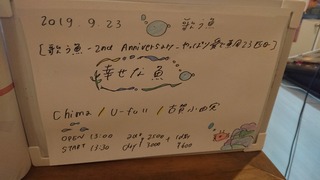 2019.9.23 歌う魚
[歌う魚 - 2nd Anniversary - やっぱり愛で東風23だ!]
幸せな魚
Chima / U-full / 古賀小由実
OPEN 13:00 adv 2500 + 1d
START 13:30 day 3000 ¥600